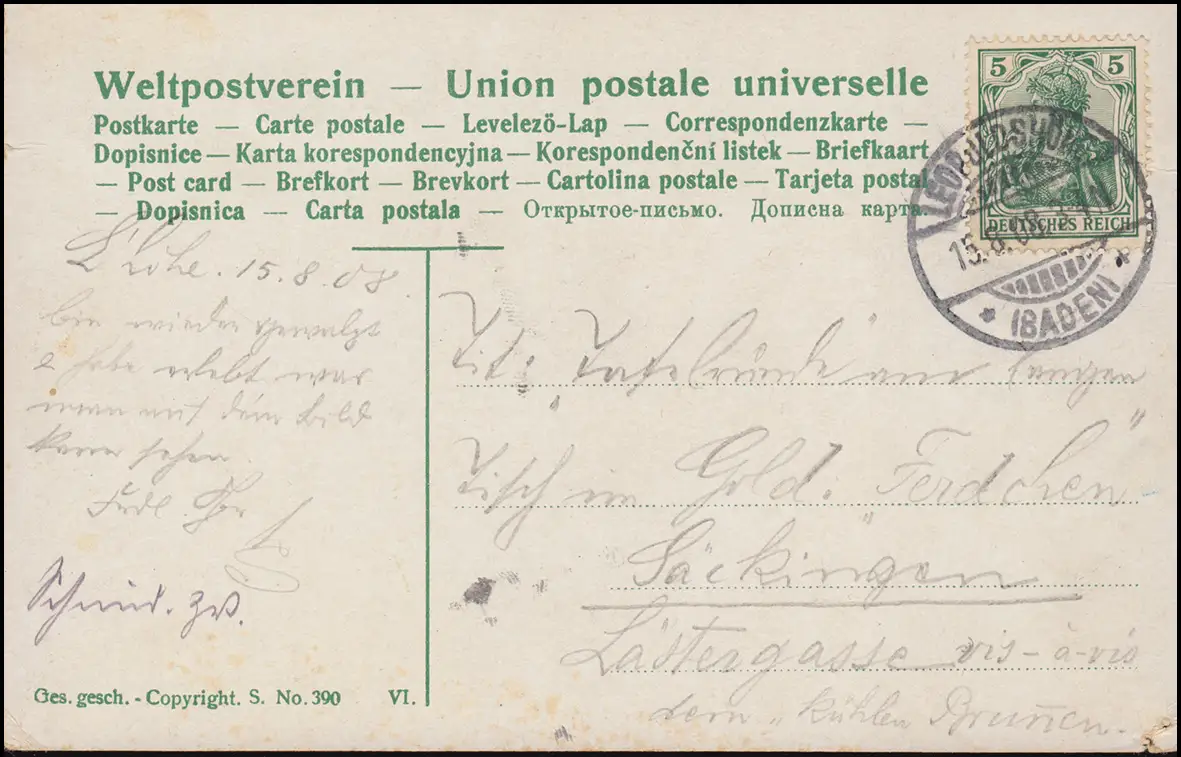 Weltpostverein — Union postale universelle
Postkarte — Carte postale — Levelező-Lap — Correspondenzkarte —
Dopisnice — Karta korespondencyjna — Korespondenční listek — Briefkaart
— Post card — Brefkort — Brevkort — Cartolina postale — Tarjeta postal
— Dopisnica — Carta postala — Открытое-письмо. Дописна карта.
5 5
DEUTSCHES REICH
LEOPOLDSHÖHE
15.8.08
(BADEN)
L'höhe. 15.8.08.
bin wieder
& habe erlebt was
man auf dem Bild
kann sehen.
Schmid.
Tit: Tafelründe am langen
Tisch im Gold: Ferdchen"
Säckingen
Lästergasse vis-à-vis
dem „Kühlen Brunnen.
Ges. gesch. - Copyright. S. No. 390 VI.